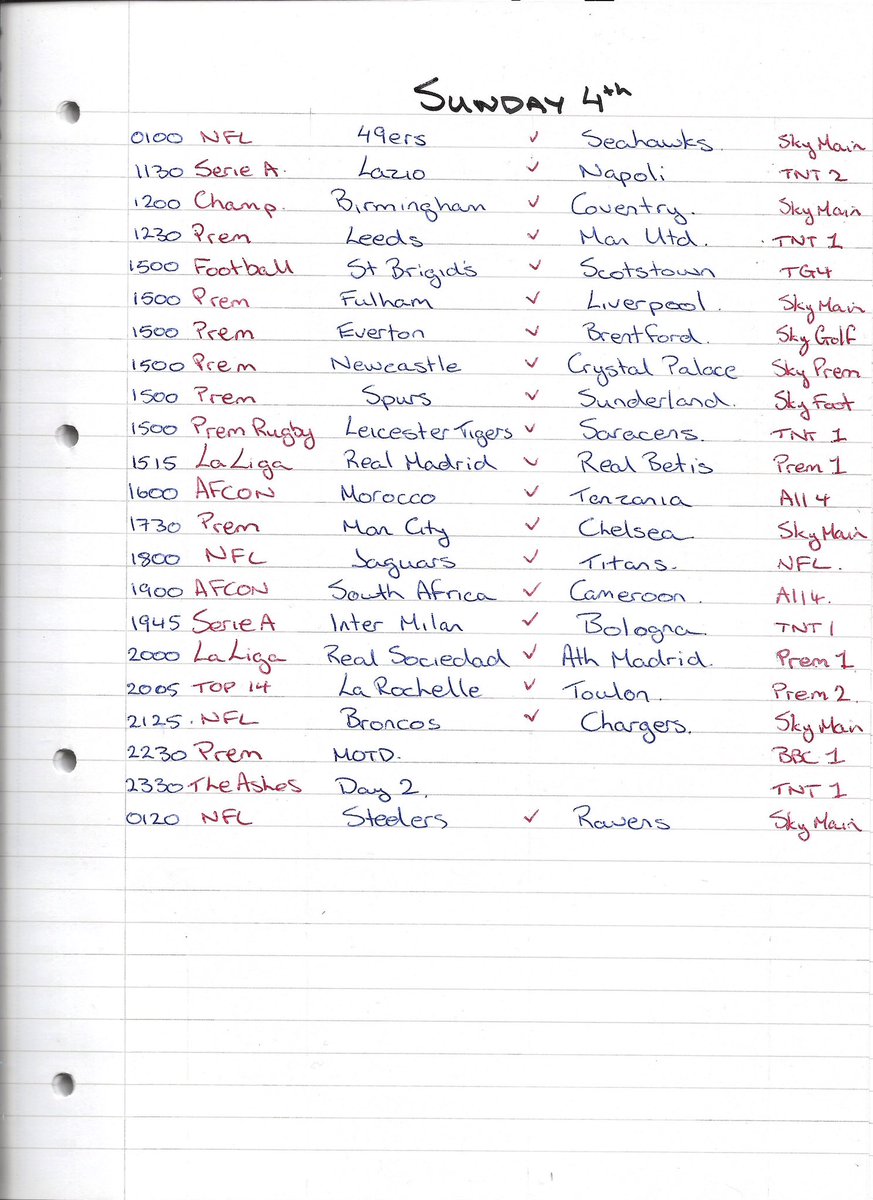 SUNDAY 4th
0100 NFL 49ers v Seahawks. Sky Main
1130 Serie A. Lazio v Napoli TNT 2
1200 Champ. Birmingham v Coventry. Sky Main
1230 Prem Leeds v Man Utd. TNT 1
1500 Football St Brigid's v Scotstown TG4
1500 Prem Fulham v Liverpool. Sky Main
1500 Prem Everton v Brentford. Sky Golf
1500 Prem Newcastle v Crystal Palace Sky Prem
1500 Prem Spurs v Sunderland. Sky Foot
1500 Prem Rugby Leicester Tigers v Saracens. TNT 1
1515 La Liga Real Madrid v Real Betis Prem 1
1600 AFCON Morocco v Tanzania All 4
1730 Prem Man City v Chelsea Sky Main
1800 NFL Jaguars v Titans. NFL.
1900 AFCON South Africa v Cameroon. All 4.
1945 Serie A Inter Milan v Bologna. TNT 1
2000 La Liga Real Sociedad v Ath Madrid. Prem 1
2005 TOP 14 La Rochelle v Toulon. Prem 2.
2125. NFL Broncos v Chargers. Sky Main
2230 Prem MOTD. BBC 1
2330 The Ashes Day 2. TNT 1
0120 NFL Steelers v Ravens Sky Main